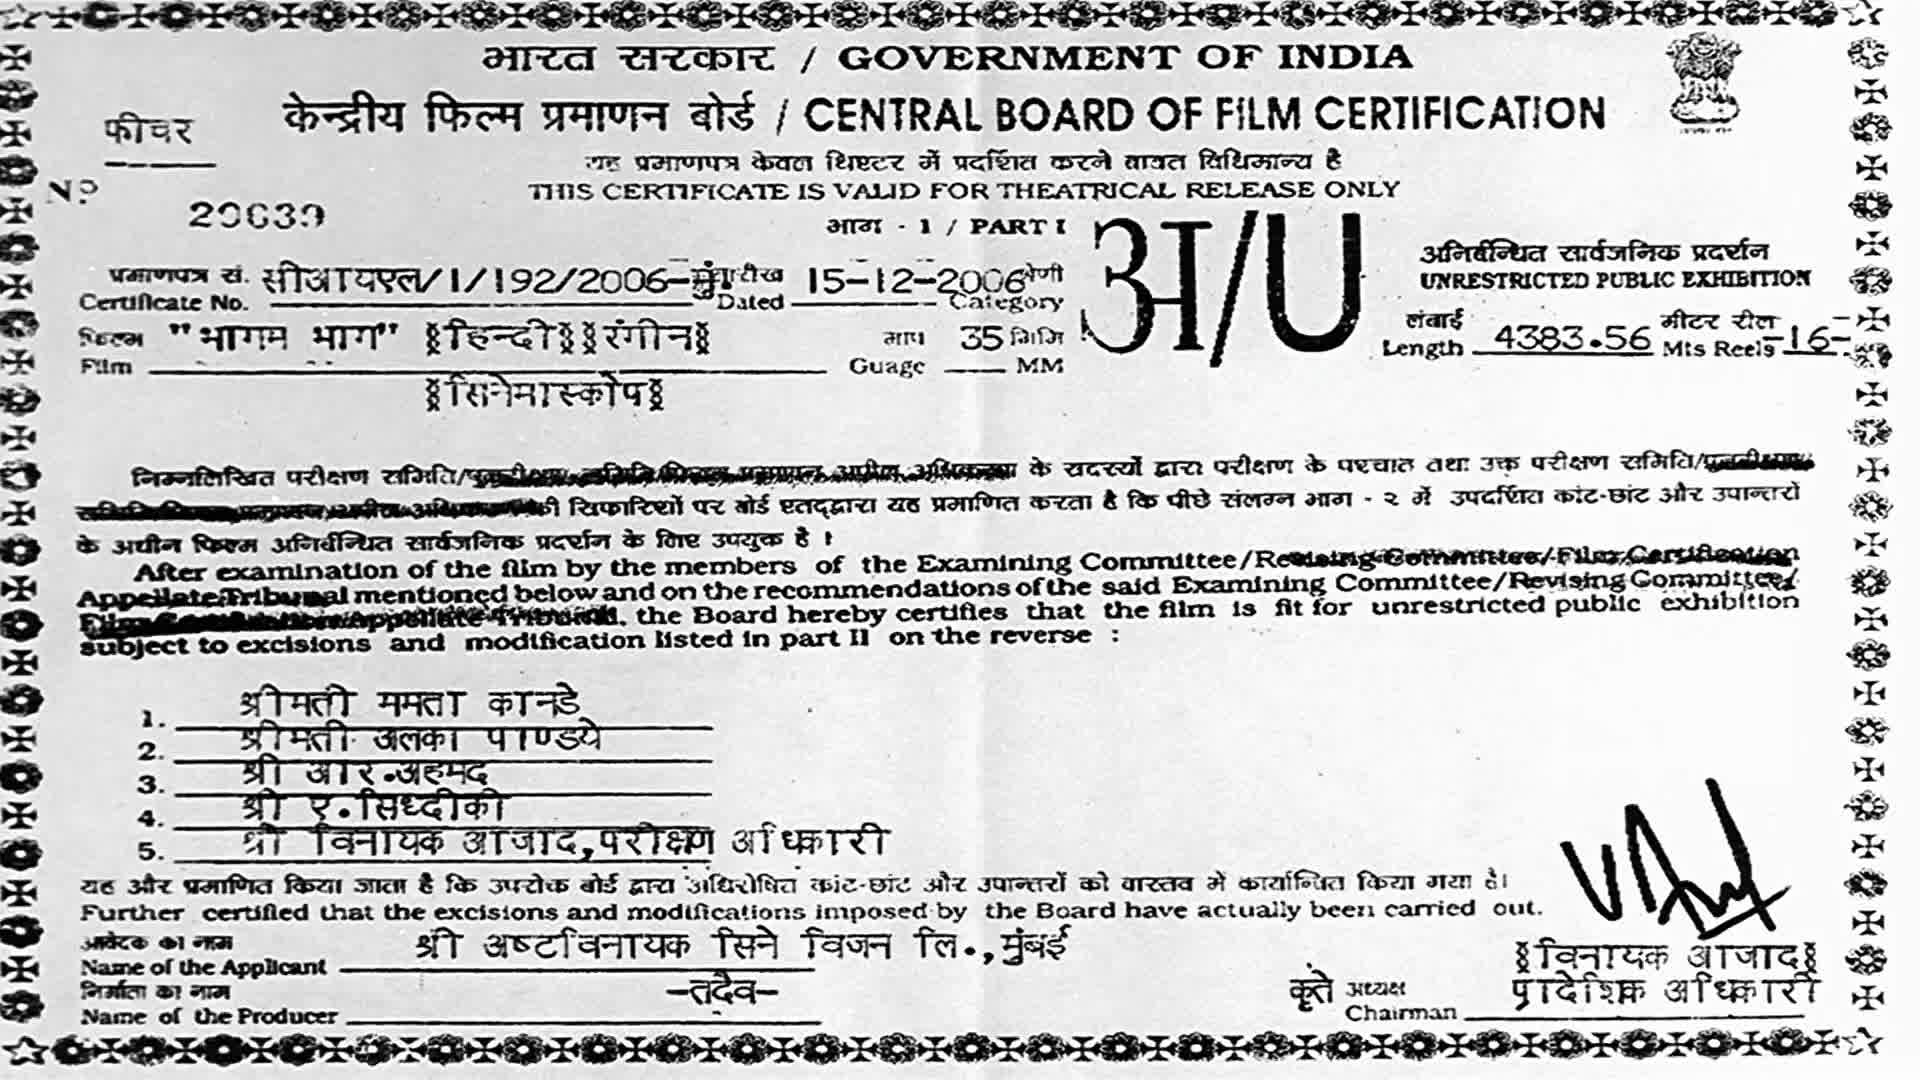 भारत सरकार / GOVERNMENT OF INDIA
फीचर
केन्द्रीय फिल्म प्रमाणन बोर्ड / CENTRAL BOARD OF FILM CERTIFICATION
यह प्रमाणपत्र केवल थिएटर में प्रदर्शित करने बाबत विधिमान्य है
Nº
THIS CERTIFICATE IS VALID FOR THEATRICAL RELEASE ONLY
भाग - 1 / PART I
अ/U
अनिर्बन्धित सार्वजनिक प्रदर्शन
UNRESTRICTED PUBLIC EXHIBITION
प्रमाणपत्र सं. सीआयएल/1/192/2006-मुं तारीख 15-12-2006 श्रेणी
Certificate No. Dated Category
फिल्म "भागम भाग" (हिन्दी)(रंगीन) माप 35 मिमि
Film Guage MM
लंबाई 4383.56 मीटर रील -16-
Length Mts Reels
(सिनेमास्कोप)
निम्नलिखित परीक्षण समिति/ के सदस्यों द्वारा परीक्षण के पश्चात तथा उक्त परीक्षण समिति/
की सिफारिशों पर बोर्ड एतद्द्वारा यह प्रमाणित करता है कि पीछे संलग्न भाग - २ में उपदर्शित कांट-छांट और उपान्तरों
के अधीन फिल्म अनिर्बन्धित सार्वजनिक प्रदर्शन के लिए उपयुक्त है ।
After examination of the film by the members of the Examining Committee/Revising Committee/Film Certification
Appellate Tribunal mentioned below and on the recommendations of the said Examining Committee/Revising Committee/
Film Certification Appellate Tribunal, the Board hereby certifies that the film is fit for unrestricted public exhibition
subject to excisions and modification listed in part II on the reverse :
1. श्रीमती ममता कानडे
2. श्रीमती अलका पाण्डये
3. श्री आर.अहमद
4. श्री ए.सिध्दीकी
5. श्री विनायक आजाद,परीक्षण अधिकारी
यह और प्रमाणित किया जाता है कि उपरोक्त बोर्ड द्वारा अधिरोषित कांट-छांट और उपान्तरों को वास्तव में कार्यान्वित किया गया है।
Further certified that the excisions and modifications imposed by the Board have actually been carried out.
आवेदक का नाम श्री अष्टविनायक सिने विजन लि.,मुंबई
Name of the Applicant
निर्माता का नाम -तदैव-
Name of the Producer
(विनायक आजाद)
कृते अध्यक्ष प्रादेशिक अधिकारी
Chairman